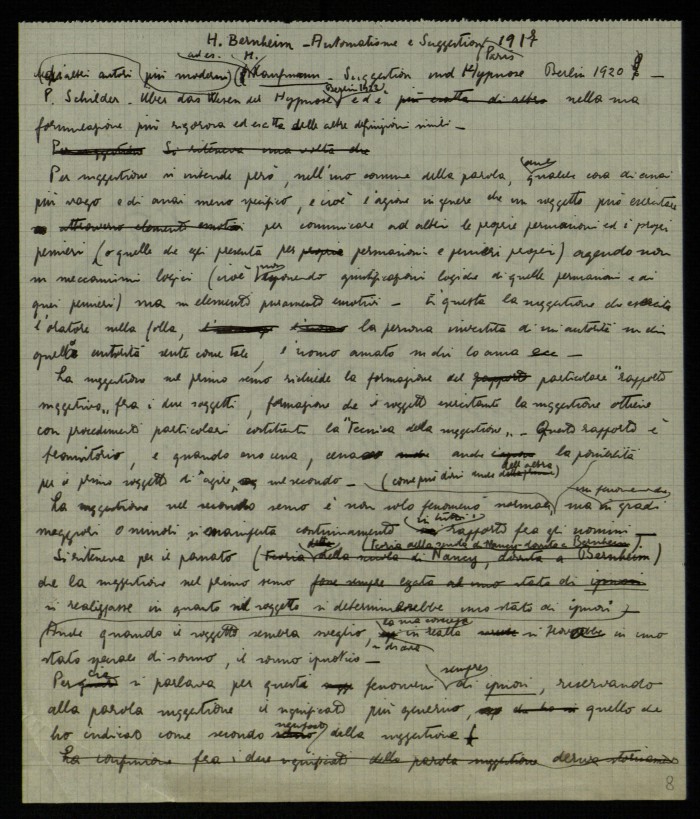 H. Bernheim - Automatisme e Suggestion 1917
ad es. H. Paris
altri autori più moderni) Kaufmann - Suggestion und Hypnose Berlin 1920 -
P. Schilder - Über das Wesen der Hypnose, Berlin 1922, ed è più esatta di altre nella sua
formulazione più rigorosa ed esatta delle altre definizioni simili -
Per suggestione Si riteneva una volta che
Per suggestione si intende però, nell'uso comune della parola, anche qualche cosa di assai
più vago e di assai meno specifico, e cioè l'azione in genere che un soggetto può esercitare
attraverso elementi emotivi per comunicare ad altri le proprie persuasioni ed i propri
pensieri (o quelle che egli presenta per persuasioni e pensieri propri) agendo non
su meccanismi logici (cioè non esponendo giustificazioni logiche di quelle persuasioni e di
quei pensieri) ma su elementi puramente emotivi - È questa la suggestione che esercita
l'oratore sulla folla, la persona investita di un'autorità su chi
quella autorità sente come tale, l'uomo amato su chi lo ama ecc -
La suggestione nel primo senso richiede la formazione del rapporto particolare "rapporto
suggestivo" fra i due soggetti, formazione che il soggetto esercitante la suggestione ottiene
con procedimenti particolari costituenti la "tecnica della suggestione" - Questo rapporto è
transitorio, e quando esso cessa, cessa anche la possibilità
per il primo soggetto di "agire" sul secondo - (come può dirsi anche dell'altra
La suggestione nel secondo senso è non solo fenomeno normale, ma in gradi
un fenomeno che
maggiori o minori si manifesta continuamente in tutti i rapporto fra gli uomini -
Si riteneva per il passato (Teoria della scuola di Nancy, dovuta a Bernheim)
(Teoria della scuola di Nancy dovuta a Bernheim).
che la suggestione nel primo senso fosse sempre legata ad uno stato di ipnosi
si realizzasse in quanto nel soggetto si determinerebbe uno stato di ipnosi -
Anche quando il soggetto sembra sveglio, in realtà si troverebbe in uno
la sua coscienza
stato speciale di sonno, il sonno ipnotico -
Perciò si parlava per questi fenomeni sempre di ipnosi, riservando
alla parola suggestione il significato più generico, quello che
ho indicato come secondo significato della suggestione
La confusione fra i due significati della parola suggestione deriva storicamente
8